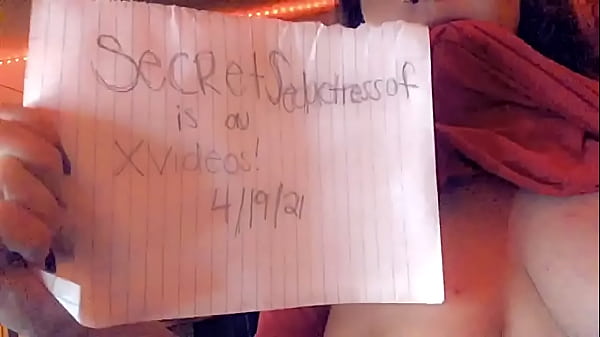 Secret Seductressof
is on
XVideos!
4/19/21